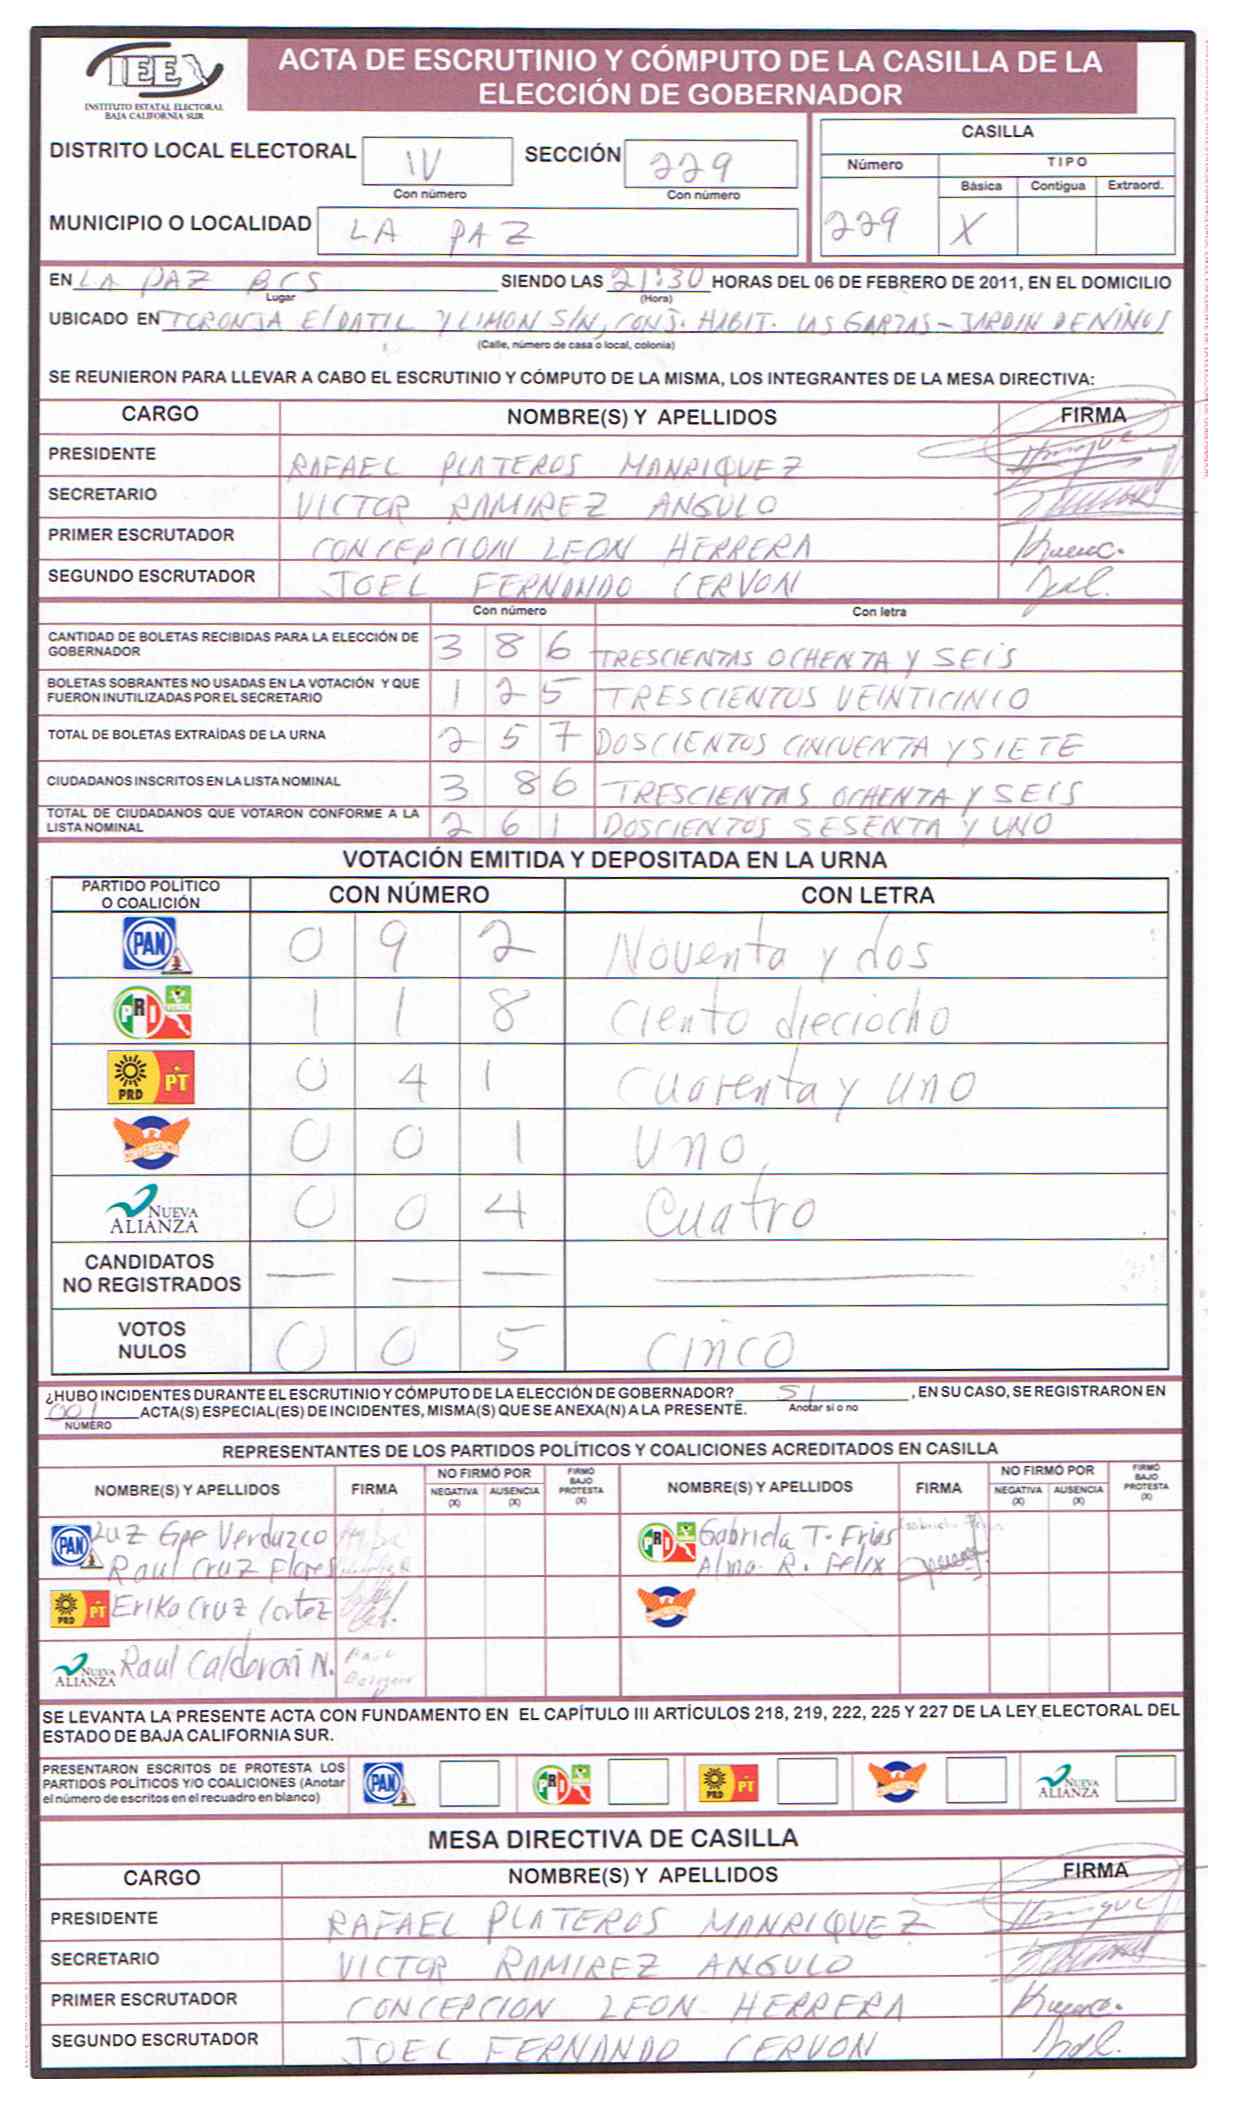 IEE
INSTITUTO ESTATAL ELECTORAL
BAJA CALIFORNIA SUR
ACTA DE ESCRUTINIO Y CÓMPUTO DE LA CASILLA DE LA
ELECCIÓN DE GOBERNADOR
DISTRITO LOCAL ELECTORAL IV SECCIÓN 229
Con número Con número
MUNICIPIO O LOCALIDAD LA PAZ
CASILLA
Número TIPO
Básica Contigua Extraord.
229 X
EN LA PAZ BCS SIENDO LAS 21:30 HORAS DEL 06 DE FEBRERO DE 2011, EN EL DOMICILIO
Lugar (Hora)
UBICADO EN TORONJA E/DATIL Y LIMON S/N, CONJ. HABIT. LAS GARZAS - JARDIN DE NIÑOS
(Calle, número de casa o local, colonia)
SE REUNIERON PARA LLEVAR A CABO EL ESCRUTINIO Y CÓMPUTO DE LA MISMA, LOS INTEGRANTES DE LA MESA DIRECTIVA:
CARGO NOMBRE(S) Y APELLIDOS FIRMA
PRESIDENTE RAFAEL PLATEROS MANRIQUEZ
SECRETARIO VICTOR RAMIREZ ANGULO
PRIMER ESCRUTADOR CONCEPCION LEON HERRERA
SEGUNDO ESCRUTADOR JOEL FERNANDO CERVON
Con número Con letra
CANTIDAD DE BOLETAS RECIBIDAS PARA LA ELECCIÓN DE
GOBERNADOR 3 8 6 TRESCIENTAS OCHENTA Y SEIS
BOLETAS SOBRANTES NO USADAS EN LA VOTACIÓN Y QUE
FUERON INUTILIZADAS POR EL SECRETARIO 1 2 5 TRESCIENTOS VEINTICINIO
TOTAL DE BOLETAS EXTRAÍDAS DE LA URNA 2 5 7 DOSCIENTOS CINCUENTA Y SIETE
CIUDADANOS INSCRITOS EN LA LISTA NOMINAL 3 8 6 TRESCIENTAS OCHENTA Y SEIS
TOTAL DE CIUDADANOS QUE VOTARON CONFORME A LA
LISTA NOMINAL 2 6 1 DOSCIENTOS SESENTA Y UNO
VOTACIÓN EMITIDA Y DEPOSITADA EN LA URNA
PARTIDO POLÍTICO
O COALICIÓN CON NÚMERO CON LETRA
PAN 0 9 2 Noventa y dos
PRI VERDE 1 1 8 Ciento dieciocho
PRD PT 0 4 1 Cuarenta y uno
CONVERGENCIA 0 0 1 Uno
NUEVA ALIANZA 0 0 4 Cuatro
CANDIDATOS
NO REGISTRADOS — — — —
VOTOS
NULOS 0 0 5 Cinco
¿HUBO INCIDENTES DURANTE EL ESCRUTINIO Y CÓMPUTO DE LA ELECCIÓN DE GOBERNADOR? SI , EN SU CASO, SE REGISTRARON EN
001 ACTA(S) ESPECIAL(ES) DE INCIDENTES, MISMA(S) QUE SE ANEXA(N) A LA PRESENTE. Anotar si o no
NÚMERO
REPRESENTANTES DE LOS PARTIDOS POLÍTICOS Y COALICIONES ACREDITADOS EN CASILLA
NOMBRE(S) Y APELLIDOS FIRMA NO FIRMÓ POR NEGATIVA (X) AUSENCIA (X) FIRMÓ BAJO PROTESTA (X) NOMBRE(S) Y APELLIDOS FIRMA NO FIRMÓ POR NEGATIVA (X) AUSENCIA (X) FIRMÓ BAJO PROTESTA (X)
PAN Luz Gpe Verduzco PRI Gabriela T. Frias
Raul Cruz Flores Alma R. Felix
PRD PT Erika Cruz Cortez
NUEVA ALIANZA Raul Calderon N.
SE LEVANTA LA PRESENTE ACTA CON FUNDAMENTO EN EL CAPÍTULO III ARTÍCULOS 218, 219, 222, 225 Y 227 DE LA LEY ELECTORAL DEL
ESTADO DE BAJA CALIFORNIA SUR.
PRESENTARON ESCRITOS DE PROTESTA LOS
PARTIDOS POLÍTICOS Y/O COALICIONES (Anotar
el número de escritos en el recuadro en blanco) PAN PRI PRD PT NUEVA ALIANZA
MESA DIRECTIVA DE CASILLA
CARGO NOMBRE(S) Y APELLIDOS FIRMA
PRESIDENTE RAFAEL PLATEROS MANRIQUEZ
SECRETARIO VICTOR RAMIREZ ANGULO
PRIMER ESCRUTADOR CONCEPCION LEON HERRERA
SEGUNDO ESCRUTADOR JOEL FERNANDO CERVON